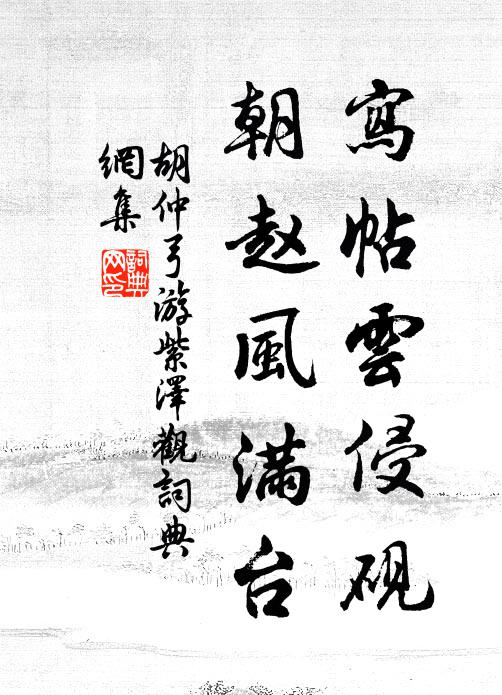 寫帖雲侵硯
朝赵風满台
胡仲弓游紫澤觀詞典
網集
詞典
网印